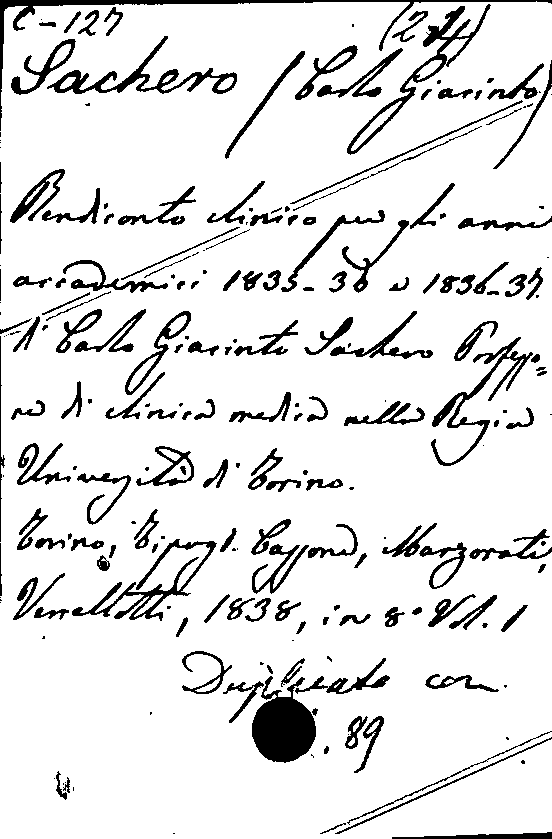 C-127 (24)
Sachero (Carlo Giacinto)
Rendiconto clinico per gli anni
accademici 1835-36 e 1836-37.
di Carlo Giacinto Sachero Professo=
re di clinica medica nella Regia
Università di Torino.
Torino, Tipogr. Cassone, Marzorati,
Vercellotti, 1838, in 8° Vol. 1
Duplicato con
. 89